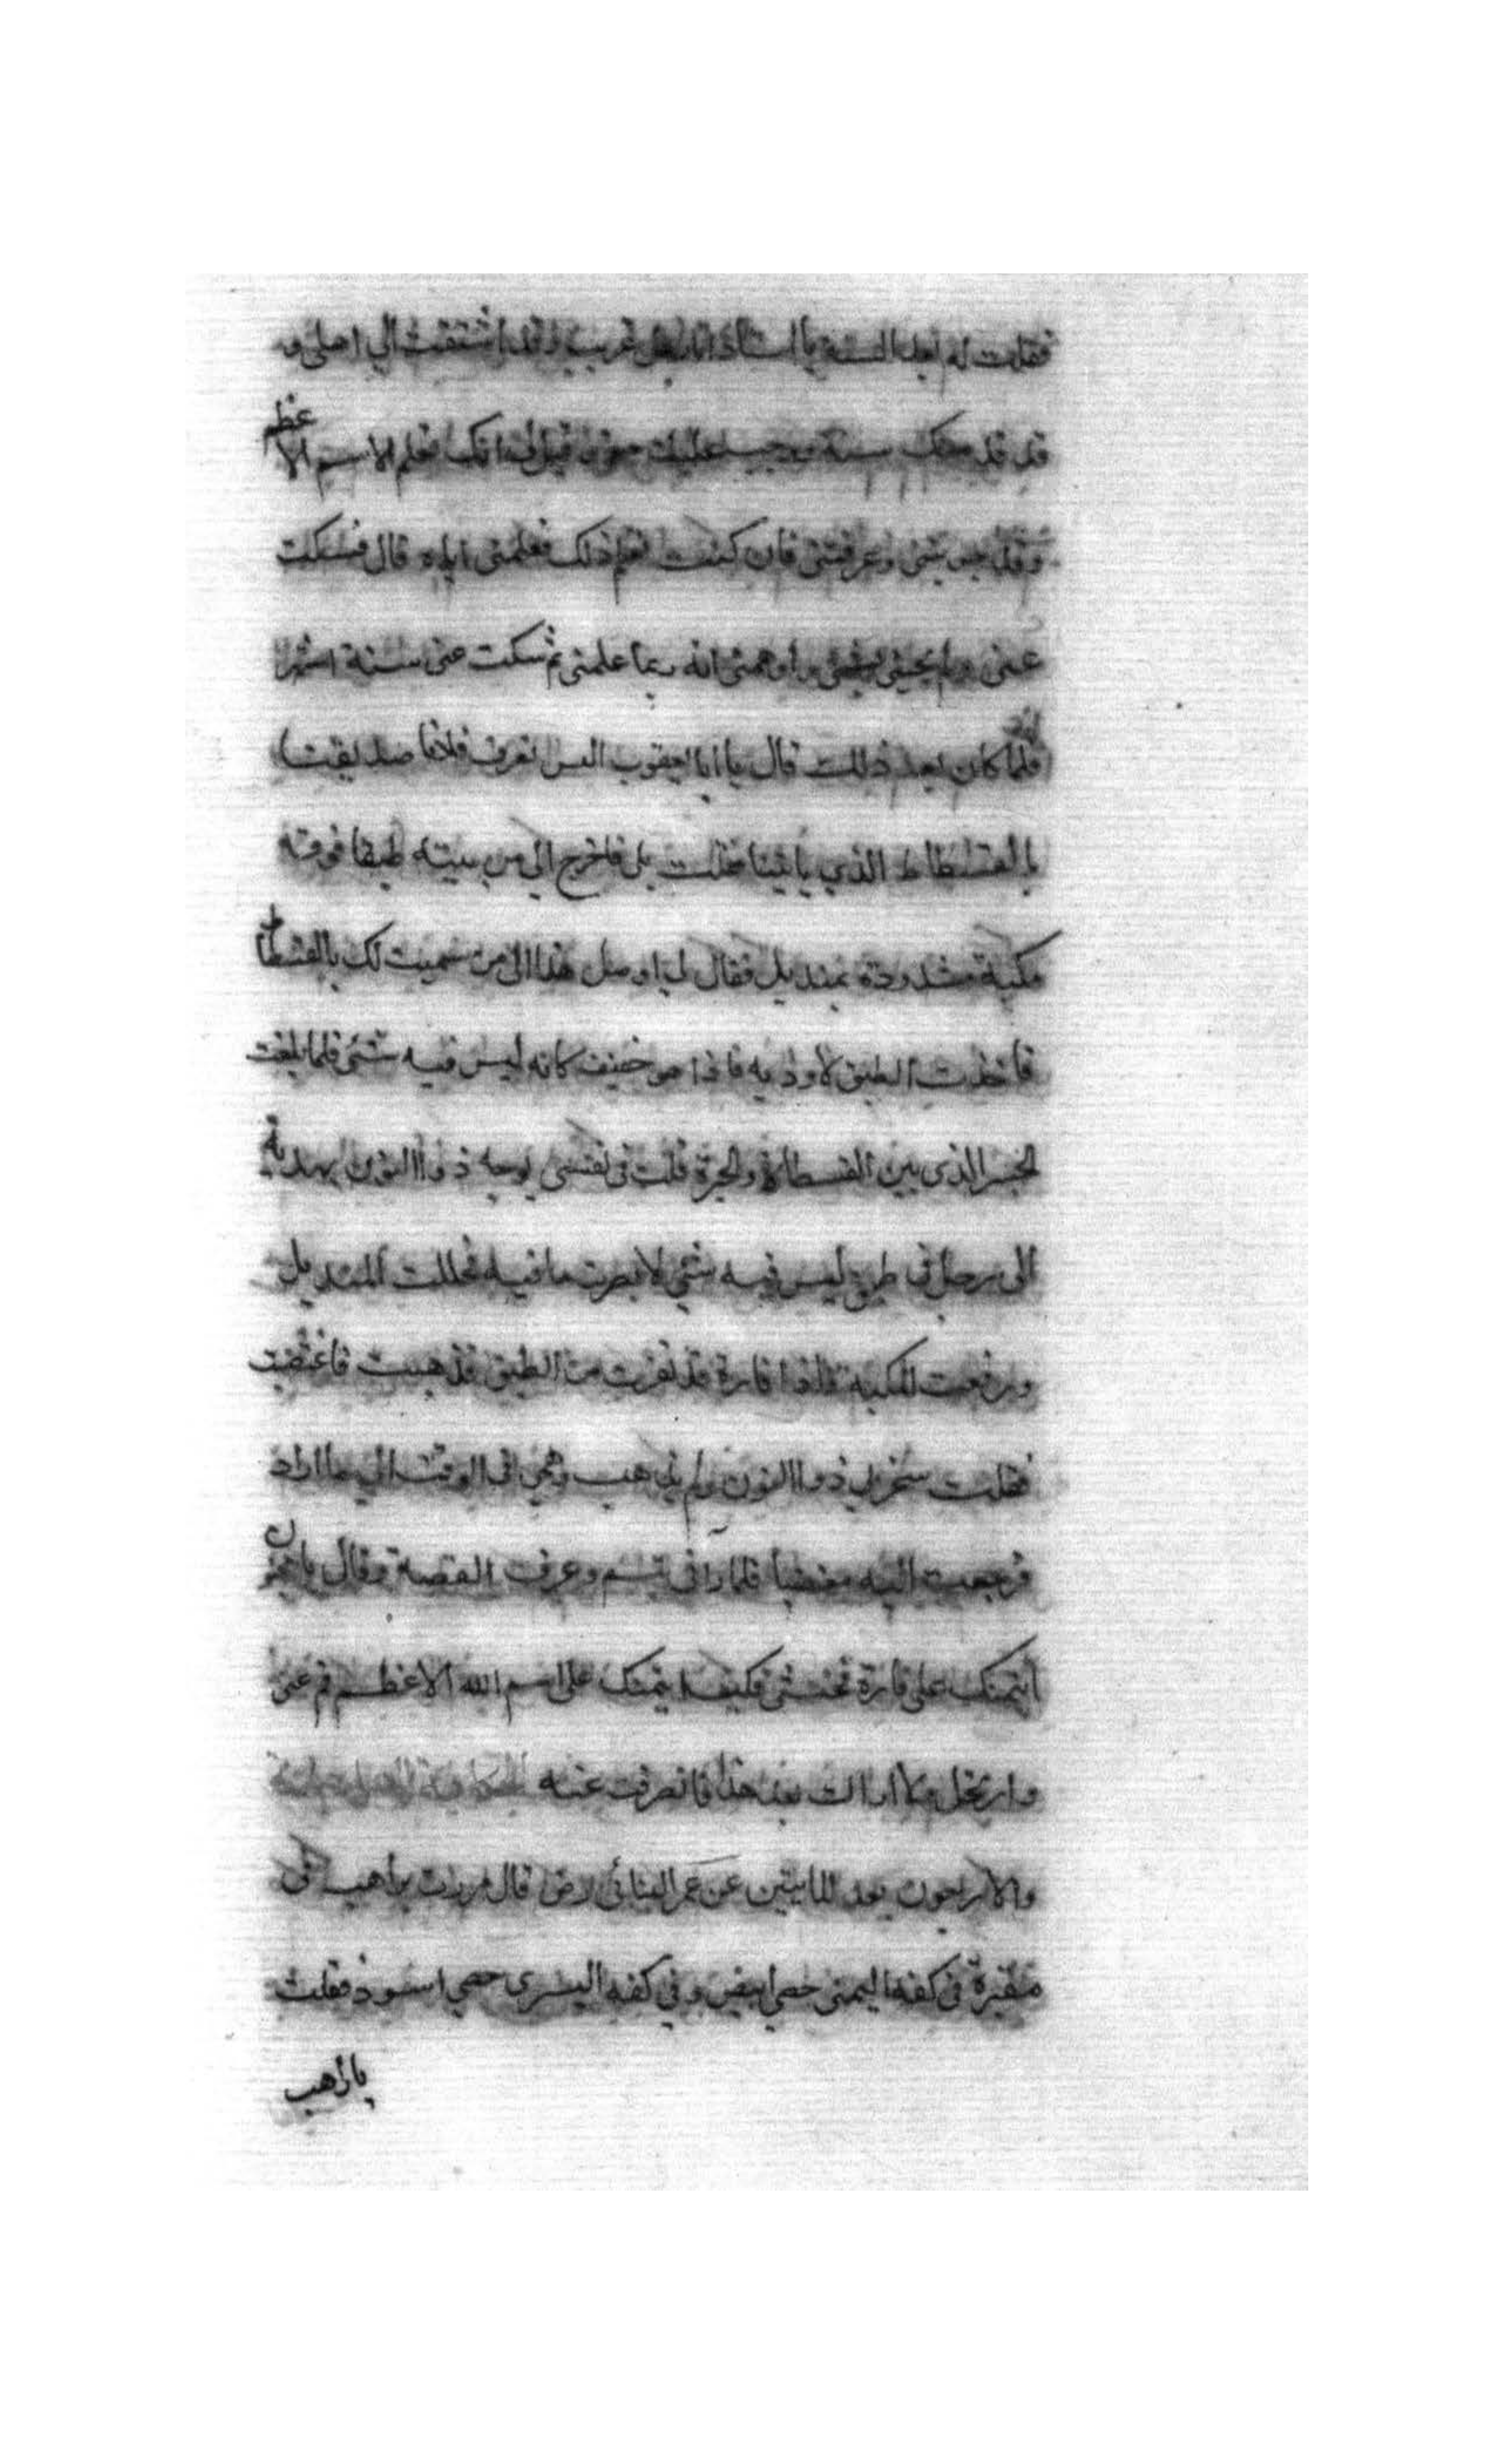 فقلت له بعد السنة يا استاذ انا رجل غريب وقد اشتقت الى اهلي و
قد خدمتك سنة ووجب عليك حقي وقيل لي انك تعلم الاسم الاعظم
وقد جربتني وعرفتني فان كنت تعلم ذلك فعلمني اياه قال فسكت
عني ولم يجبني بشئ واوهمني انه ربما علمني ثم سكت عني ستة اشهر
فلما كان بعد ذلك قال يا ابا يعقوب اليس تعرف فلانا صديقنا
بالفسطاط الذي ياتينا فقلت بلى فاخرج الي من بيته طبقا فوقه
مكبة مشدودة بمنديل فقال لي اوصل هذا الى من سميت لك بالفسطاط
فاخذت الطبق لاوديه فاذا هو خفيف كانه ليس فيه شئ فلما بلغت
الجسر الذي بين الفسطاط والجزة قلت في نفسي يوجه ذوا النون بهدية
الى رجل في طبق ليس فيه شئ لابصرت ما فيه فحللت المنديل
ورفعت المكبة فاذا فارة قد نفرت من الطبق فذهبت فاغتضت
فقلت سخر بي ذوا النون ولم يذهب وهمي في الوقت الى ما اراد
فرجعت اليه مغضبا فلما راني تبسم وعرف القصة وقال يا مجنون
ائتمنتك على فارة فخنتني فكيف ائتمنك على اسم الله الاعظم قم عني
وارتحل ولا اراك بعد هذا فانصرفت عنه الحكاية
والاربعون بعد المايتين عن عمر البنائي رض قال مررت براهب في
مقبرة في كفه اليمنى حصى ابيض وفي كفه اليسرى حصى اسود فقلت
يا راهب